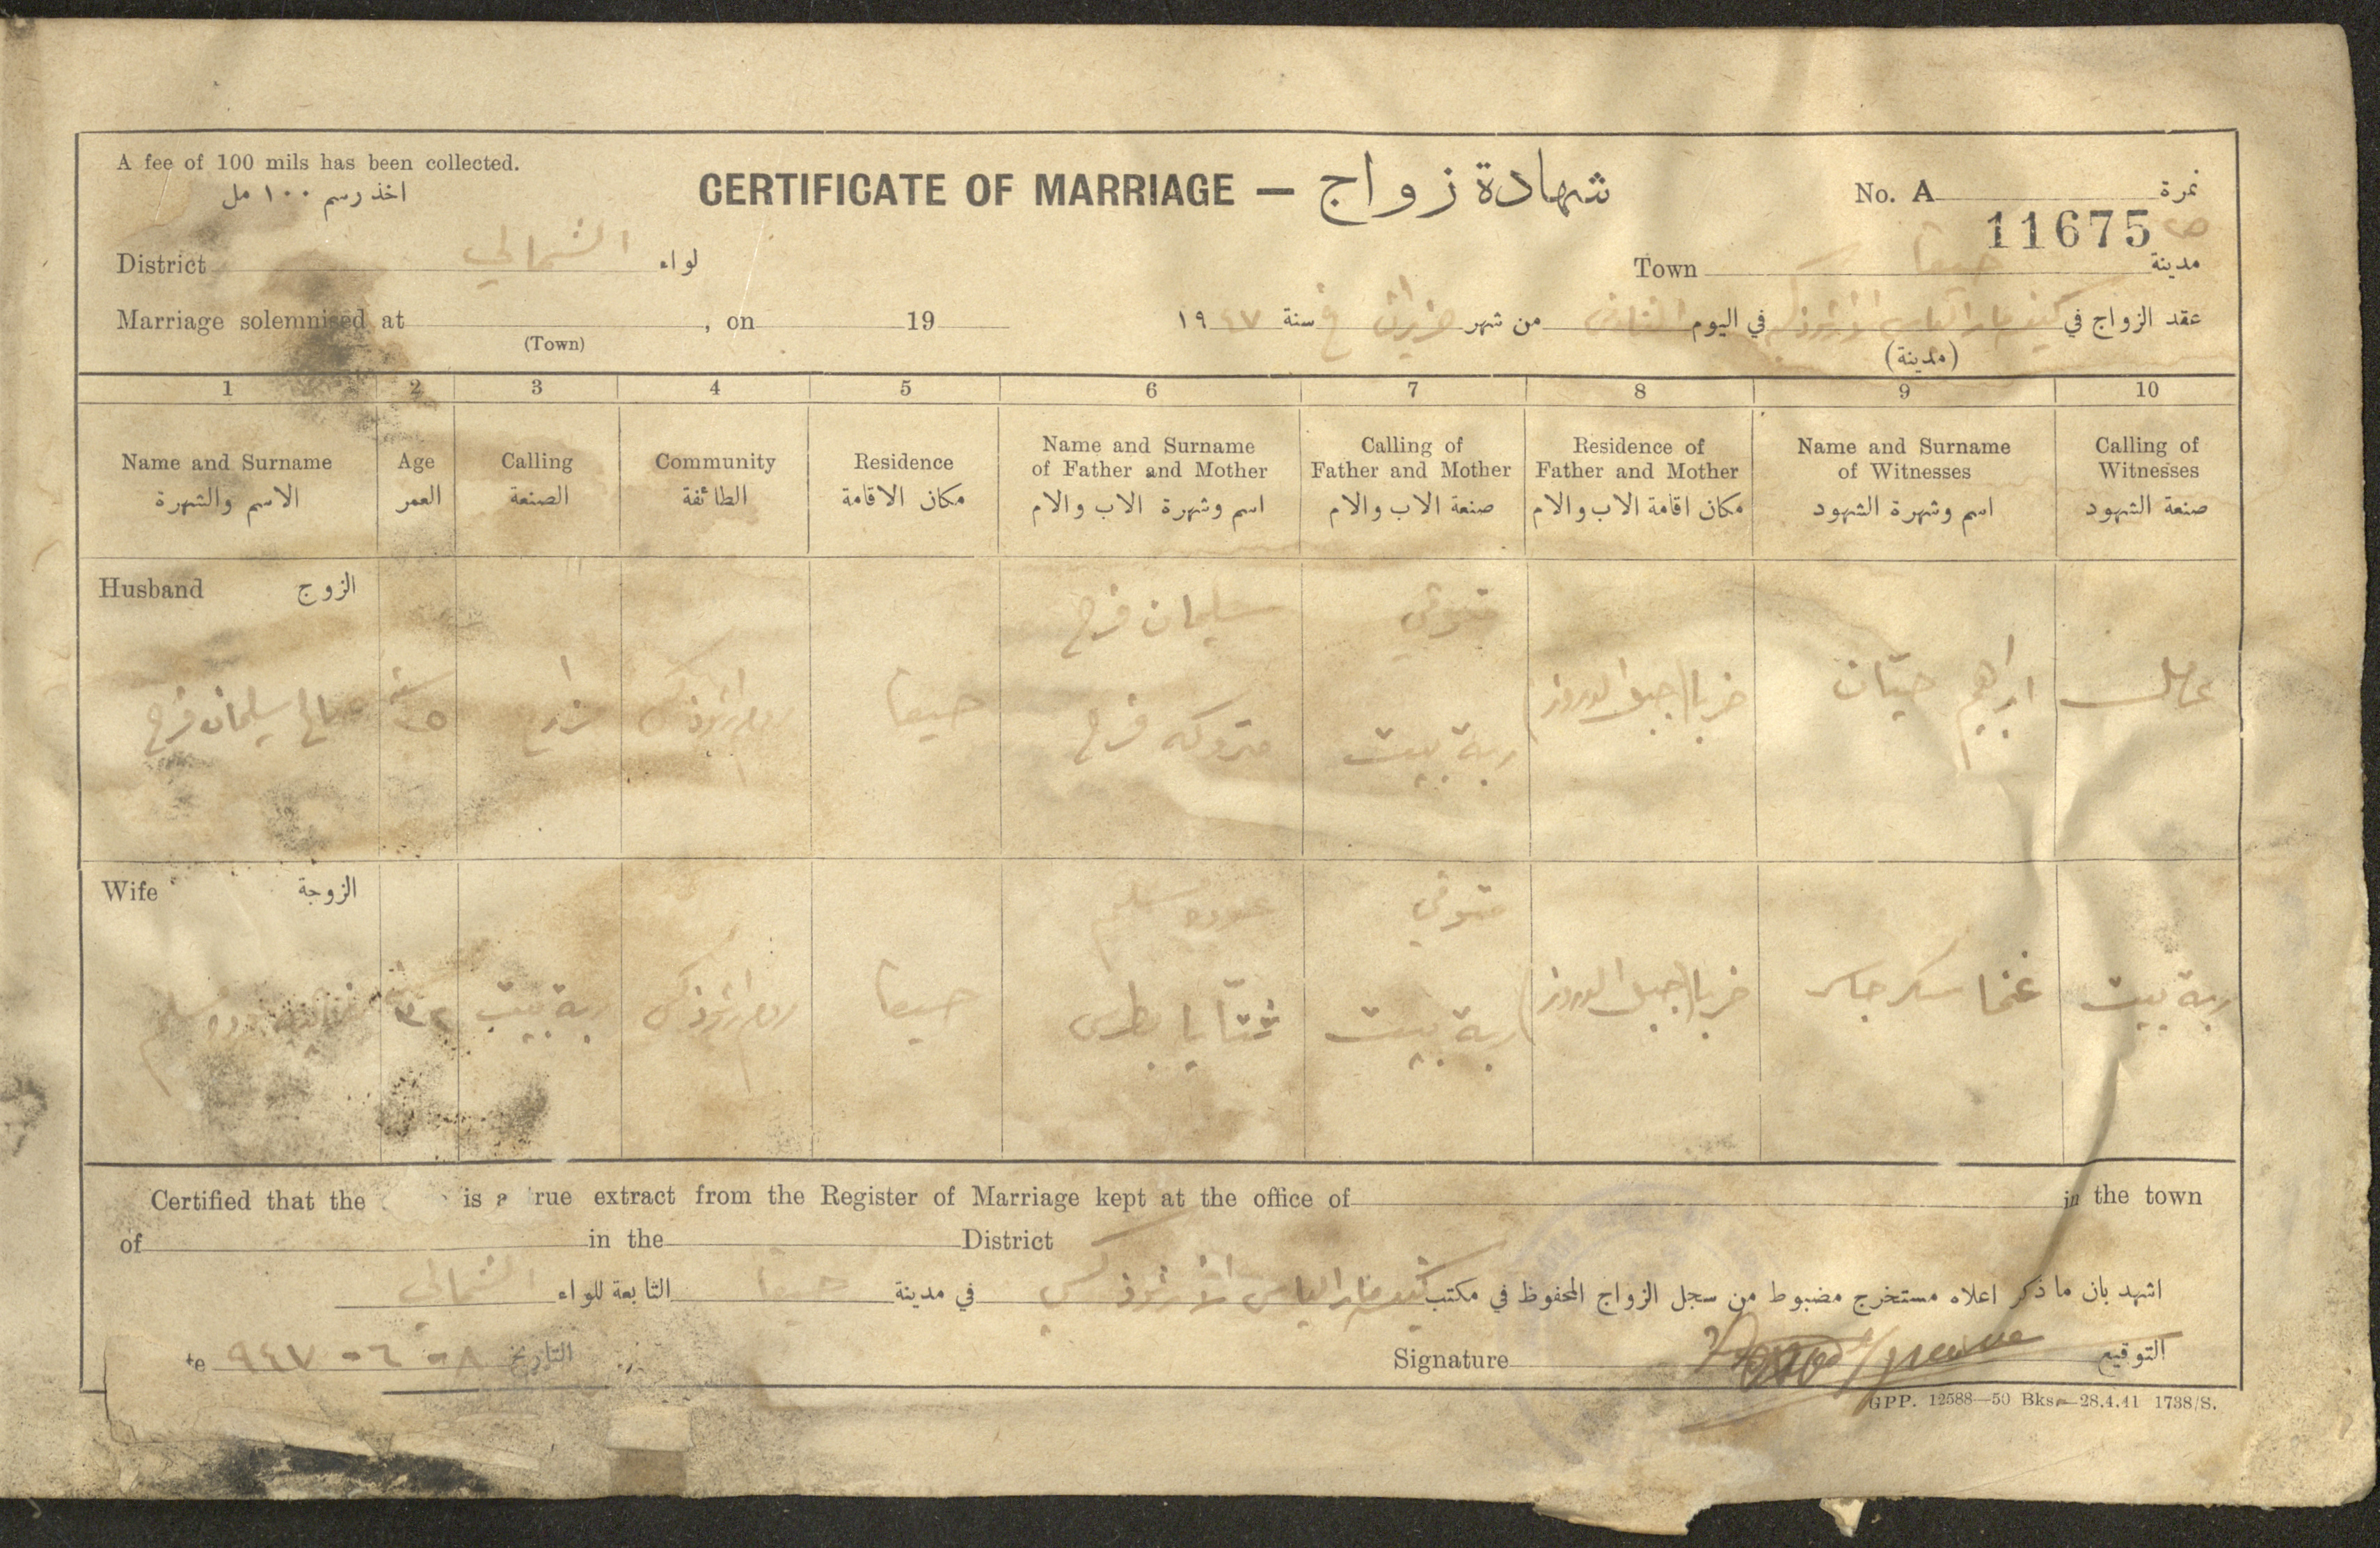 A fee of 100 mils has been collected.
اخذ رسم ١٠٠ مل
CERTIFICATE OF MARRIAGE — شهادة زواج
No. A نمرة
11675
District الشمالي لواء
Town حيفا مدينة
Marriage solemnised at , on 19
(Town)
عقد الزواج في مار الياس في اليوم من شهر حزيران سنة ١٩٤٧
(مدينة)
1 2 3 4 5 6 7 8 9 10
Name and Surname
الاسم والشهرة
Age
العمر
Calling
الصنعة
Community
الطائفة
Residence
مكان الاقامة
Name and Surname of Father and Mother
اسم وشهرة الاب والام
Calling of Father and Mother
صنعة الاب والام
Residence of Father and Mother
مكان اقامة الاب والام
Name and Surname of Witnesses
اسم وشهرة الشهود
Calling of Witnesses
صنعة الشهود
Husband الزوج
سليمان فرح
متوفي
صالح سليمان فرح
سنة
مزارع
روم ارثوذكس
حيفا
متروكه فرح
ربة بيت
خربا (جبل الدروز)
ابراهيم
عامل
Wife الزوجة
عوده سليم
متوفي
سنة
ربة بيت
روم ارثوذكس
حيفا
بطرس
ربة بيت
خربا (جبل الدروز)
ربة بيت
Certified that the is a rue extract from the Register of Marriage kept at the office of in the town
of in the District
اشهد بان ما ذكر اعلاه مستخرج مضبوط من سجل الزواج المحفوظ في مكتب مار الياس للارثوذكس في مدينة حيفا التابعة للواء الشمالي
te ٨-٦-٩٤٧ التاريخ
Signature التوقيع
GPP. 12588—50 Bks.—28.4.41 1738/S.